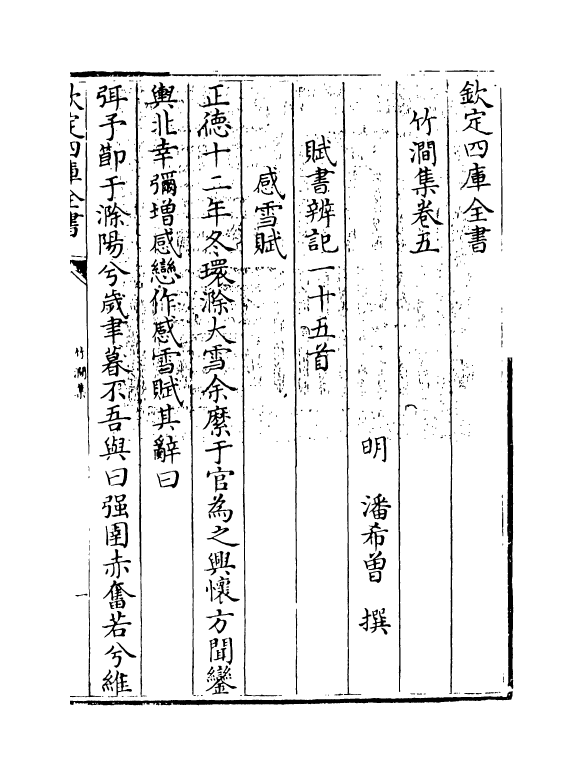 欽定四庫全書
竹澗集卷五
明　潘希曽　撰
賦書辨記一十五首
感雪賦
正徳十二年冬環滁大雪余縻于官為之興懷方聞鑾
輿北幸彌增感戀作感雪賦其辭曰
弭予節于滁陽兮歲聿暮不吾與曰强圉赤奮若兮維
欽定四庫全書
竹澗集
一